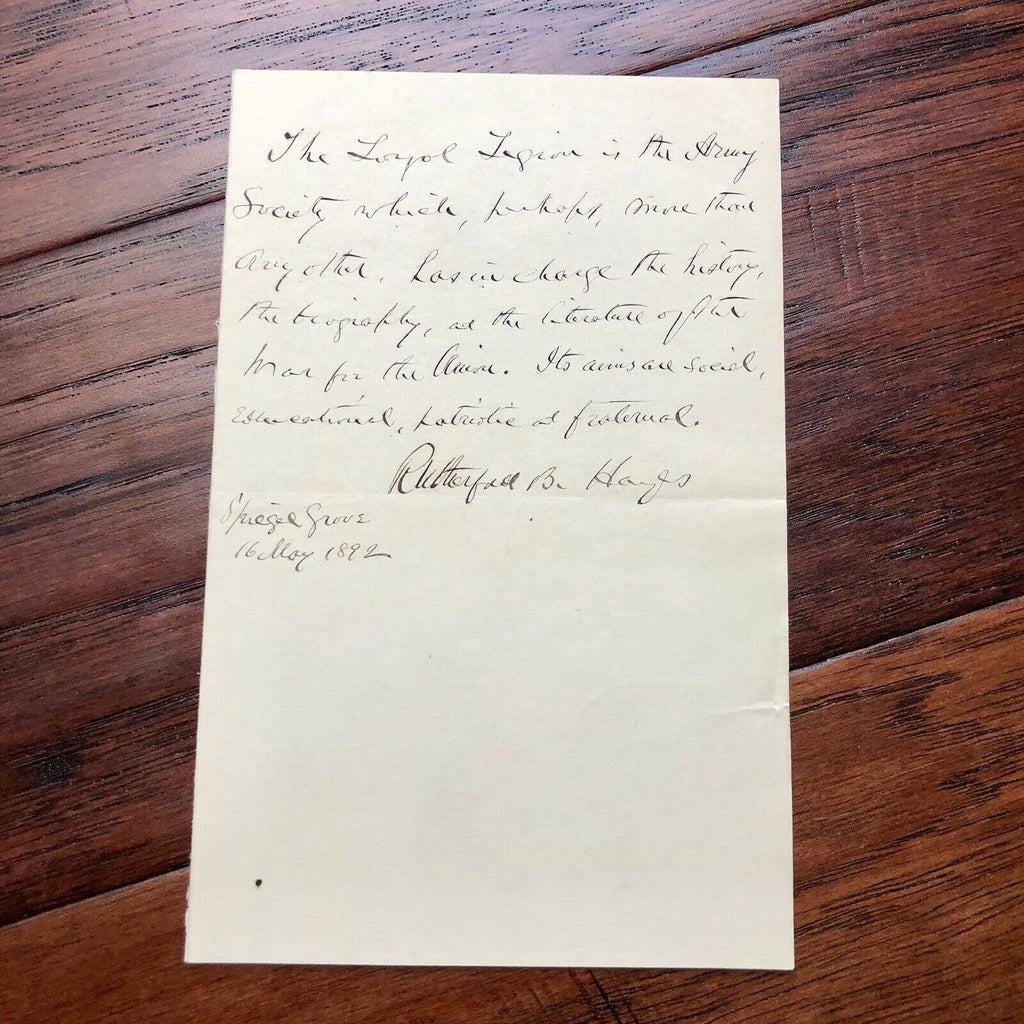 The Loyal Legion is the Army
Society which, perhaps, more than
any other, has in charge the history,
the biography, and the literature of the
War for the Union. Its aims are social,
educational, patriotic and fraternal.
Rutherford B. Hayes
Spiegel Grove
16 May 1892